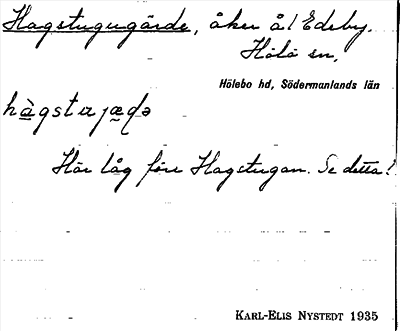 Hagstugugärde, åker å/ Edeby.
Hölö sn,
Hölebo hd, Södermanlands län
Här låg före Hagstugan. Se detta!
KARL-ELIS NYSTEDT 1935